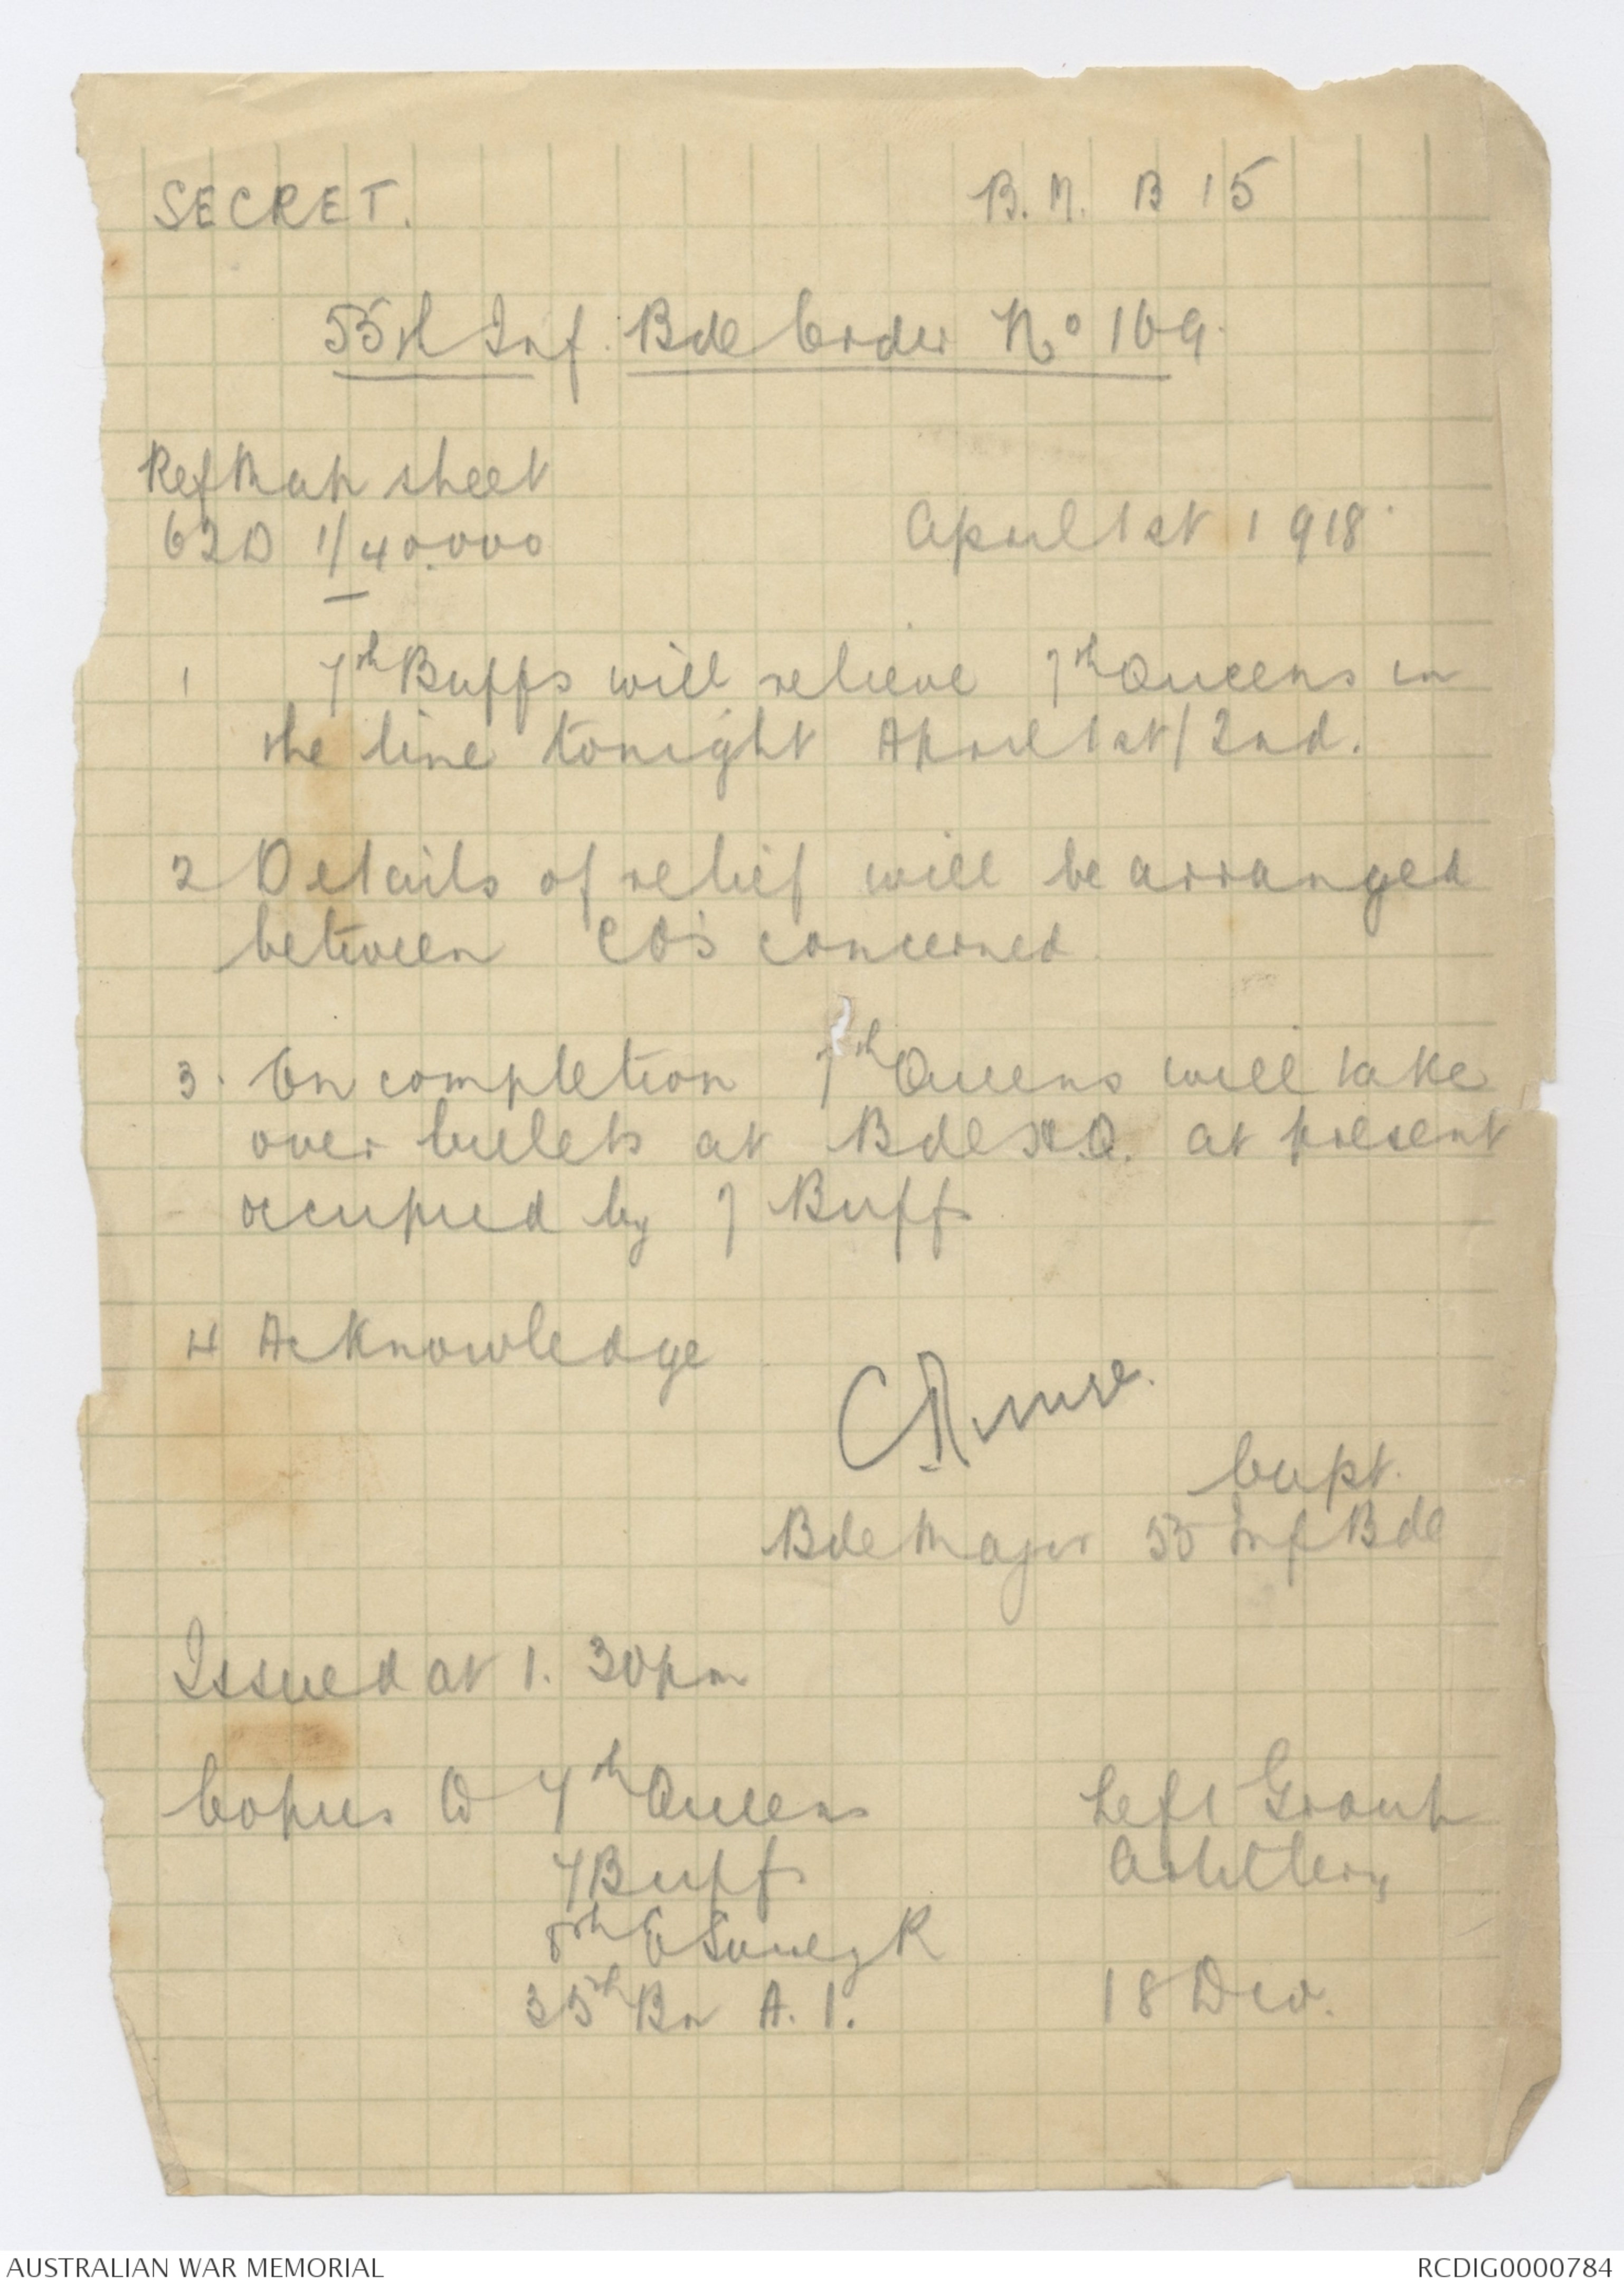 SECRET. B.M. B 15
55th Inf. Bde Order No 169.
Ref Map sheet
62D 1/40.000 April 1st 1918.
1 7th Buffs will relieve 7th Queens in
the line tonight April 1st/2nd.
2 Details of relief will be arranged
between CO's concerned.
3. On completion 7th Queens will take
over billets at Bde H.Q. at present
occupied by 7 Buffs
4 Acknowledge
Capt.
Bde Major 55 Inf Bde
Issued at 1.30pm
Copies to 7th Queens Left Group
7 Buffs Artillery
8th E Surrey R
35th Bn A.I. 18 Div.
AUSTRALIAN WAR MEMORIAL RCDIG0000784